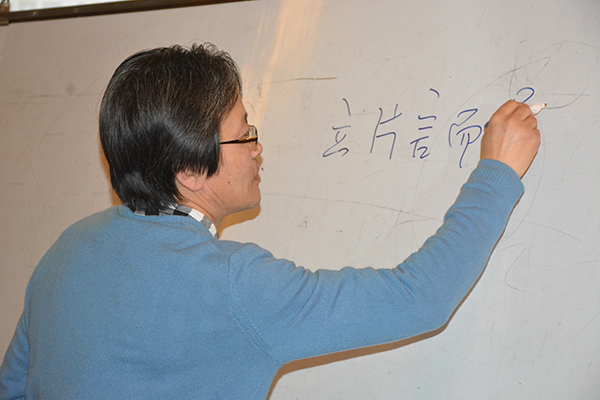 立片言而